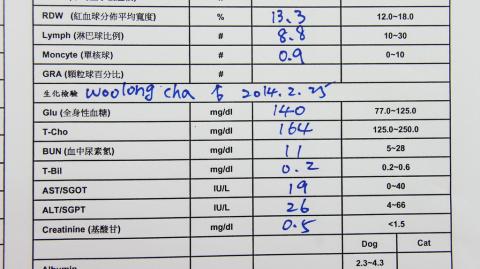 RDW (紅血球分佈平均寬度) % 13.3 12.0~18.0
Lymph (淋巴球比例) # 8.8 10~30
Moncyte (單核球) # 0.9 0~10
GRA (顆粒球百分比) #
生化檢驗 Woolong cha 2014.2.25
Glu (全身性血糖) mg/dl 140 77.0~125.0
T-Cho mg/dl 164 125.0~250.0
BUN (血中尿素氮) mg/dl 11 5~28
T-Bil mg/dl 0.2 0.2~0.6
AST/SGOT IU/L 19 0~40
ALT/SGPT IU/L 26 4~66
Creatinine (基酸甘) mg/dl 0.5 <1.5
Dog Cat
Albumin 2.3~4.3